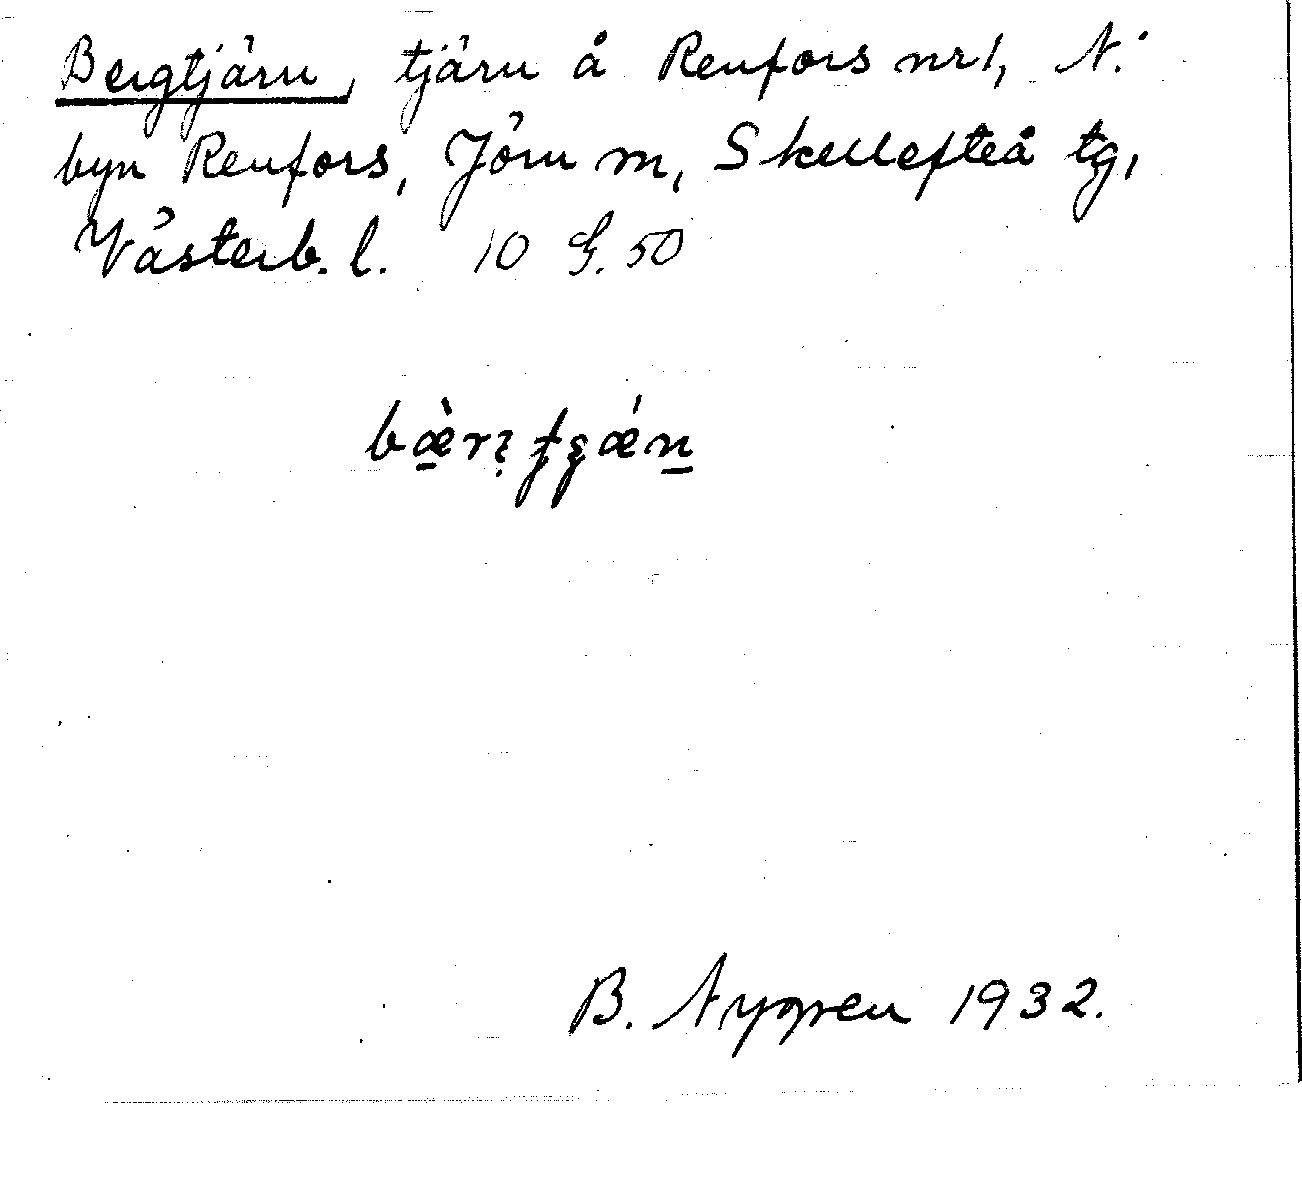 Bergtjärn, tjärn å Renfors nr 1, N.
byn Renfors, Jörn sn, Skellefteå tg,
Västerb. l. 10 G. 50
B. Nygren 1932.